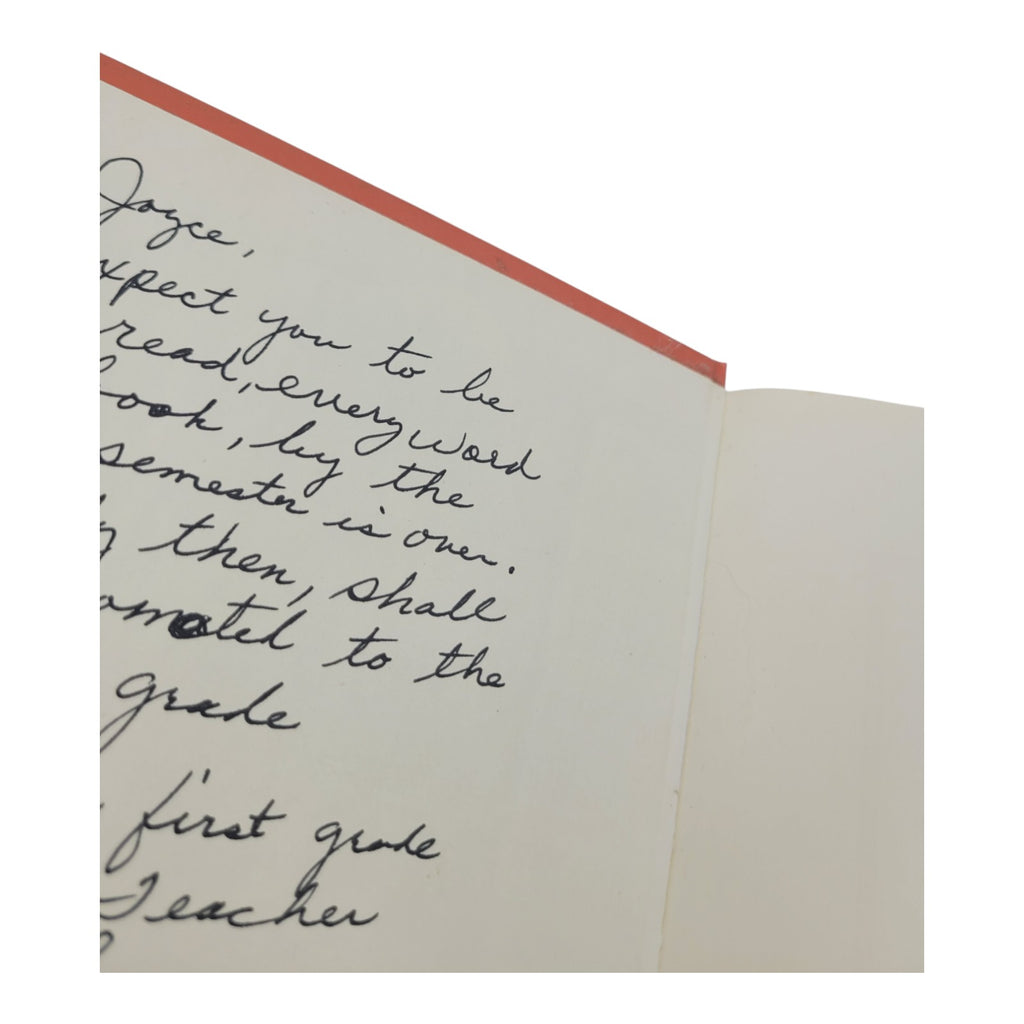 Joyce,
xpect you to be
read, every word
book, by the
semester is over.
then, shall
omoted to the
grade
first grade
Teacher